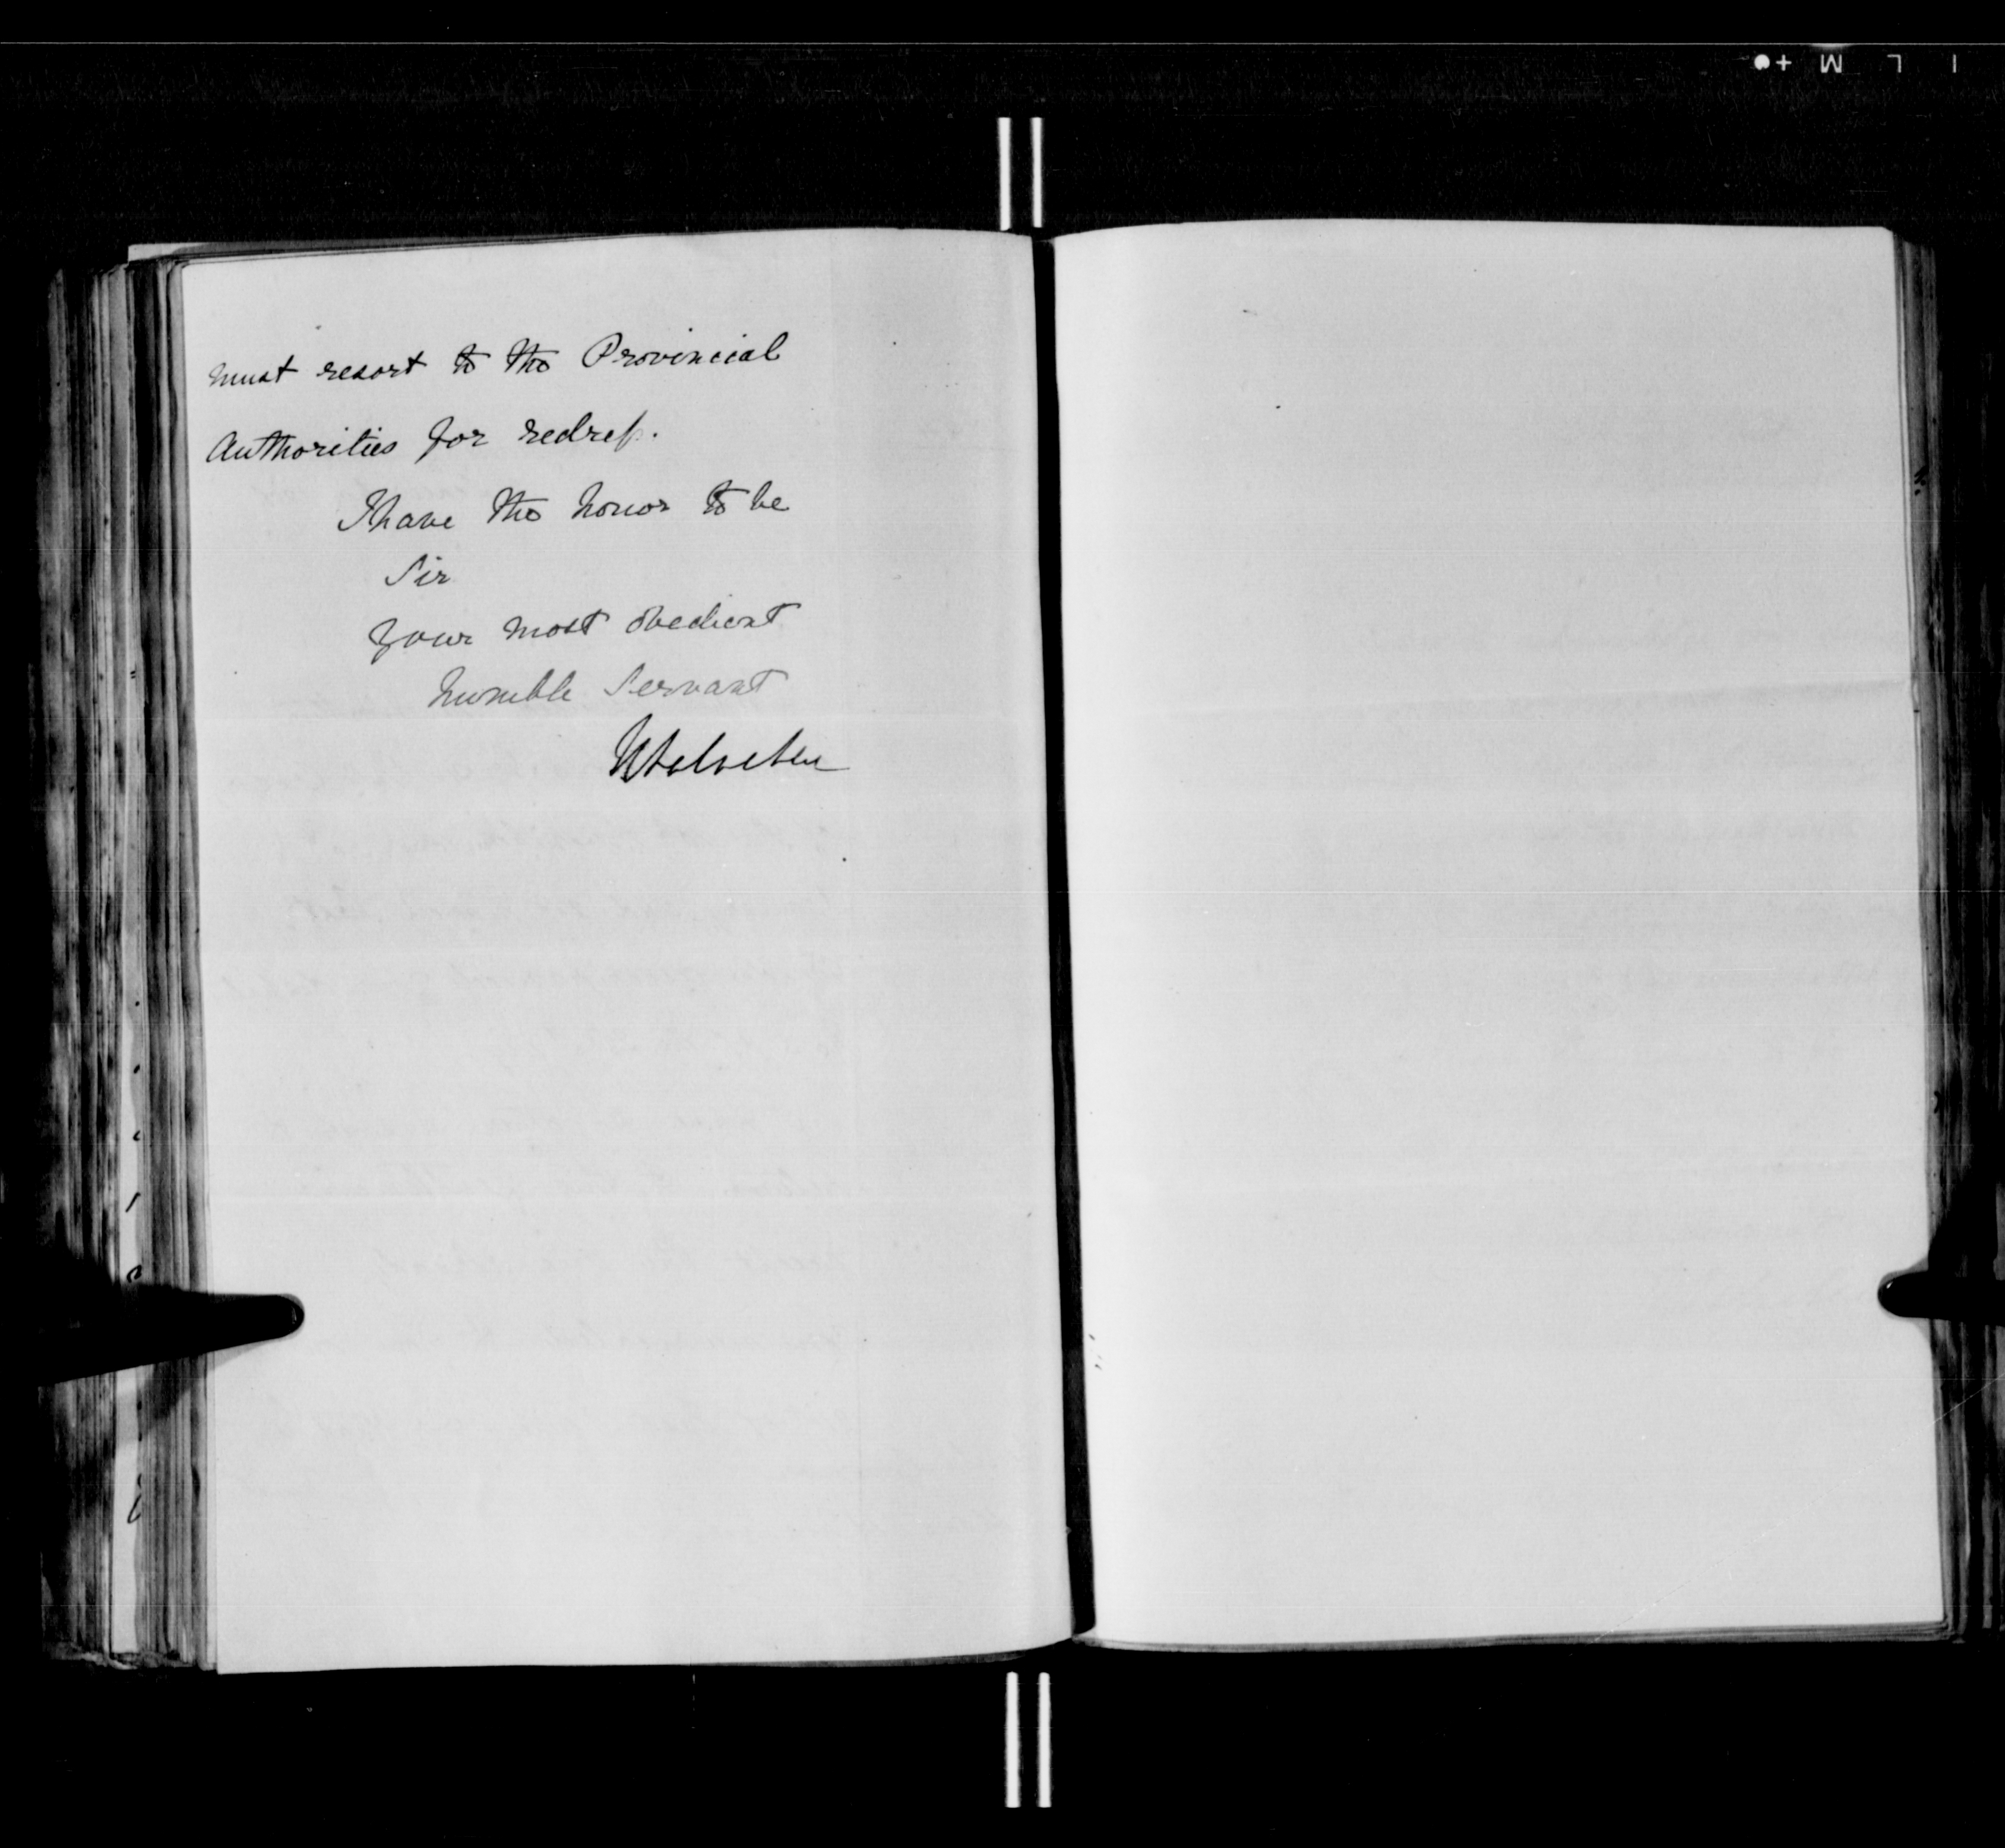 must resort to the Provincial
Authorities for redress.
I have the honor to be
Sir
Your most obedient
humble Servant